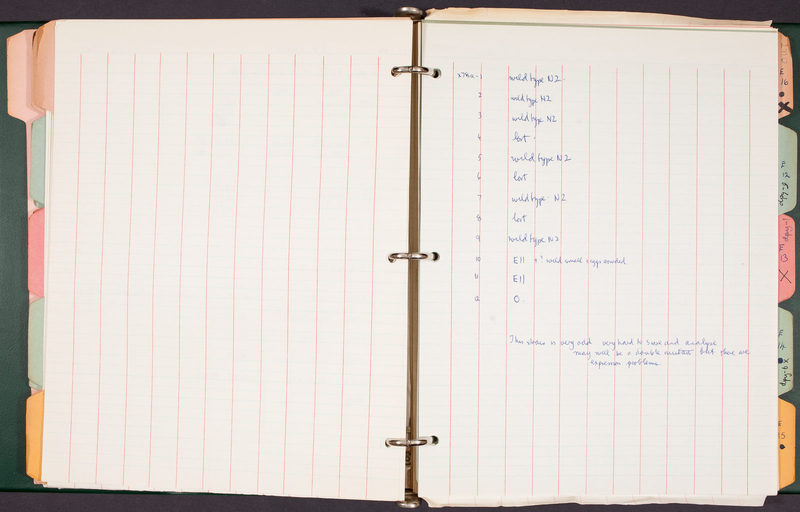 1 wild type N2.
2 wild type N2
3 wild type N2
4 lost.
5 wild type N2
6 lost
7 wild type N2
8 lost
9 wild type N2
10 E11 small eggs
11 E11
12 0.
This strain is very odd very hard to score and analyse
may well be a double mutant but there are
expression problems
E
16
dpy-1
E
13
X
E
14
dpy-6 X
E
15